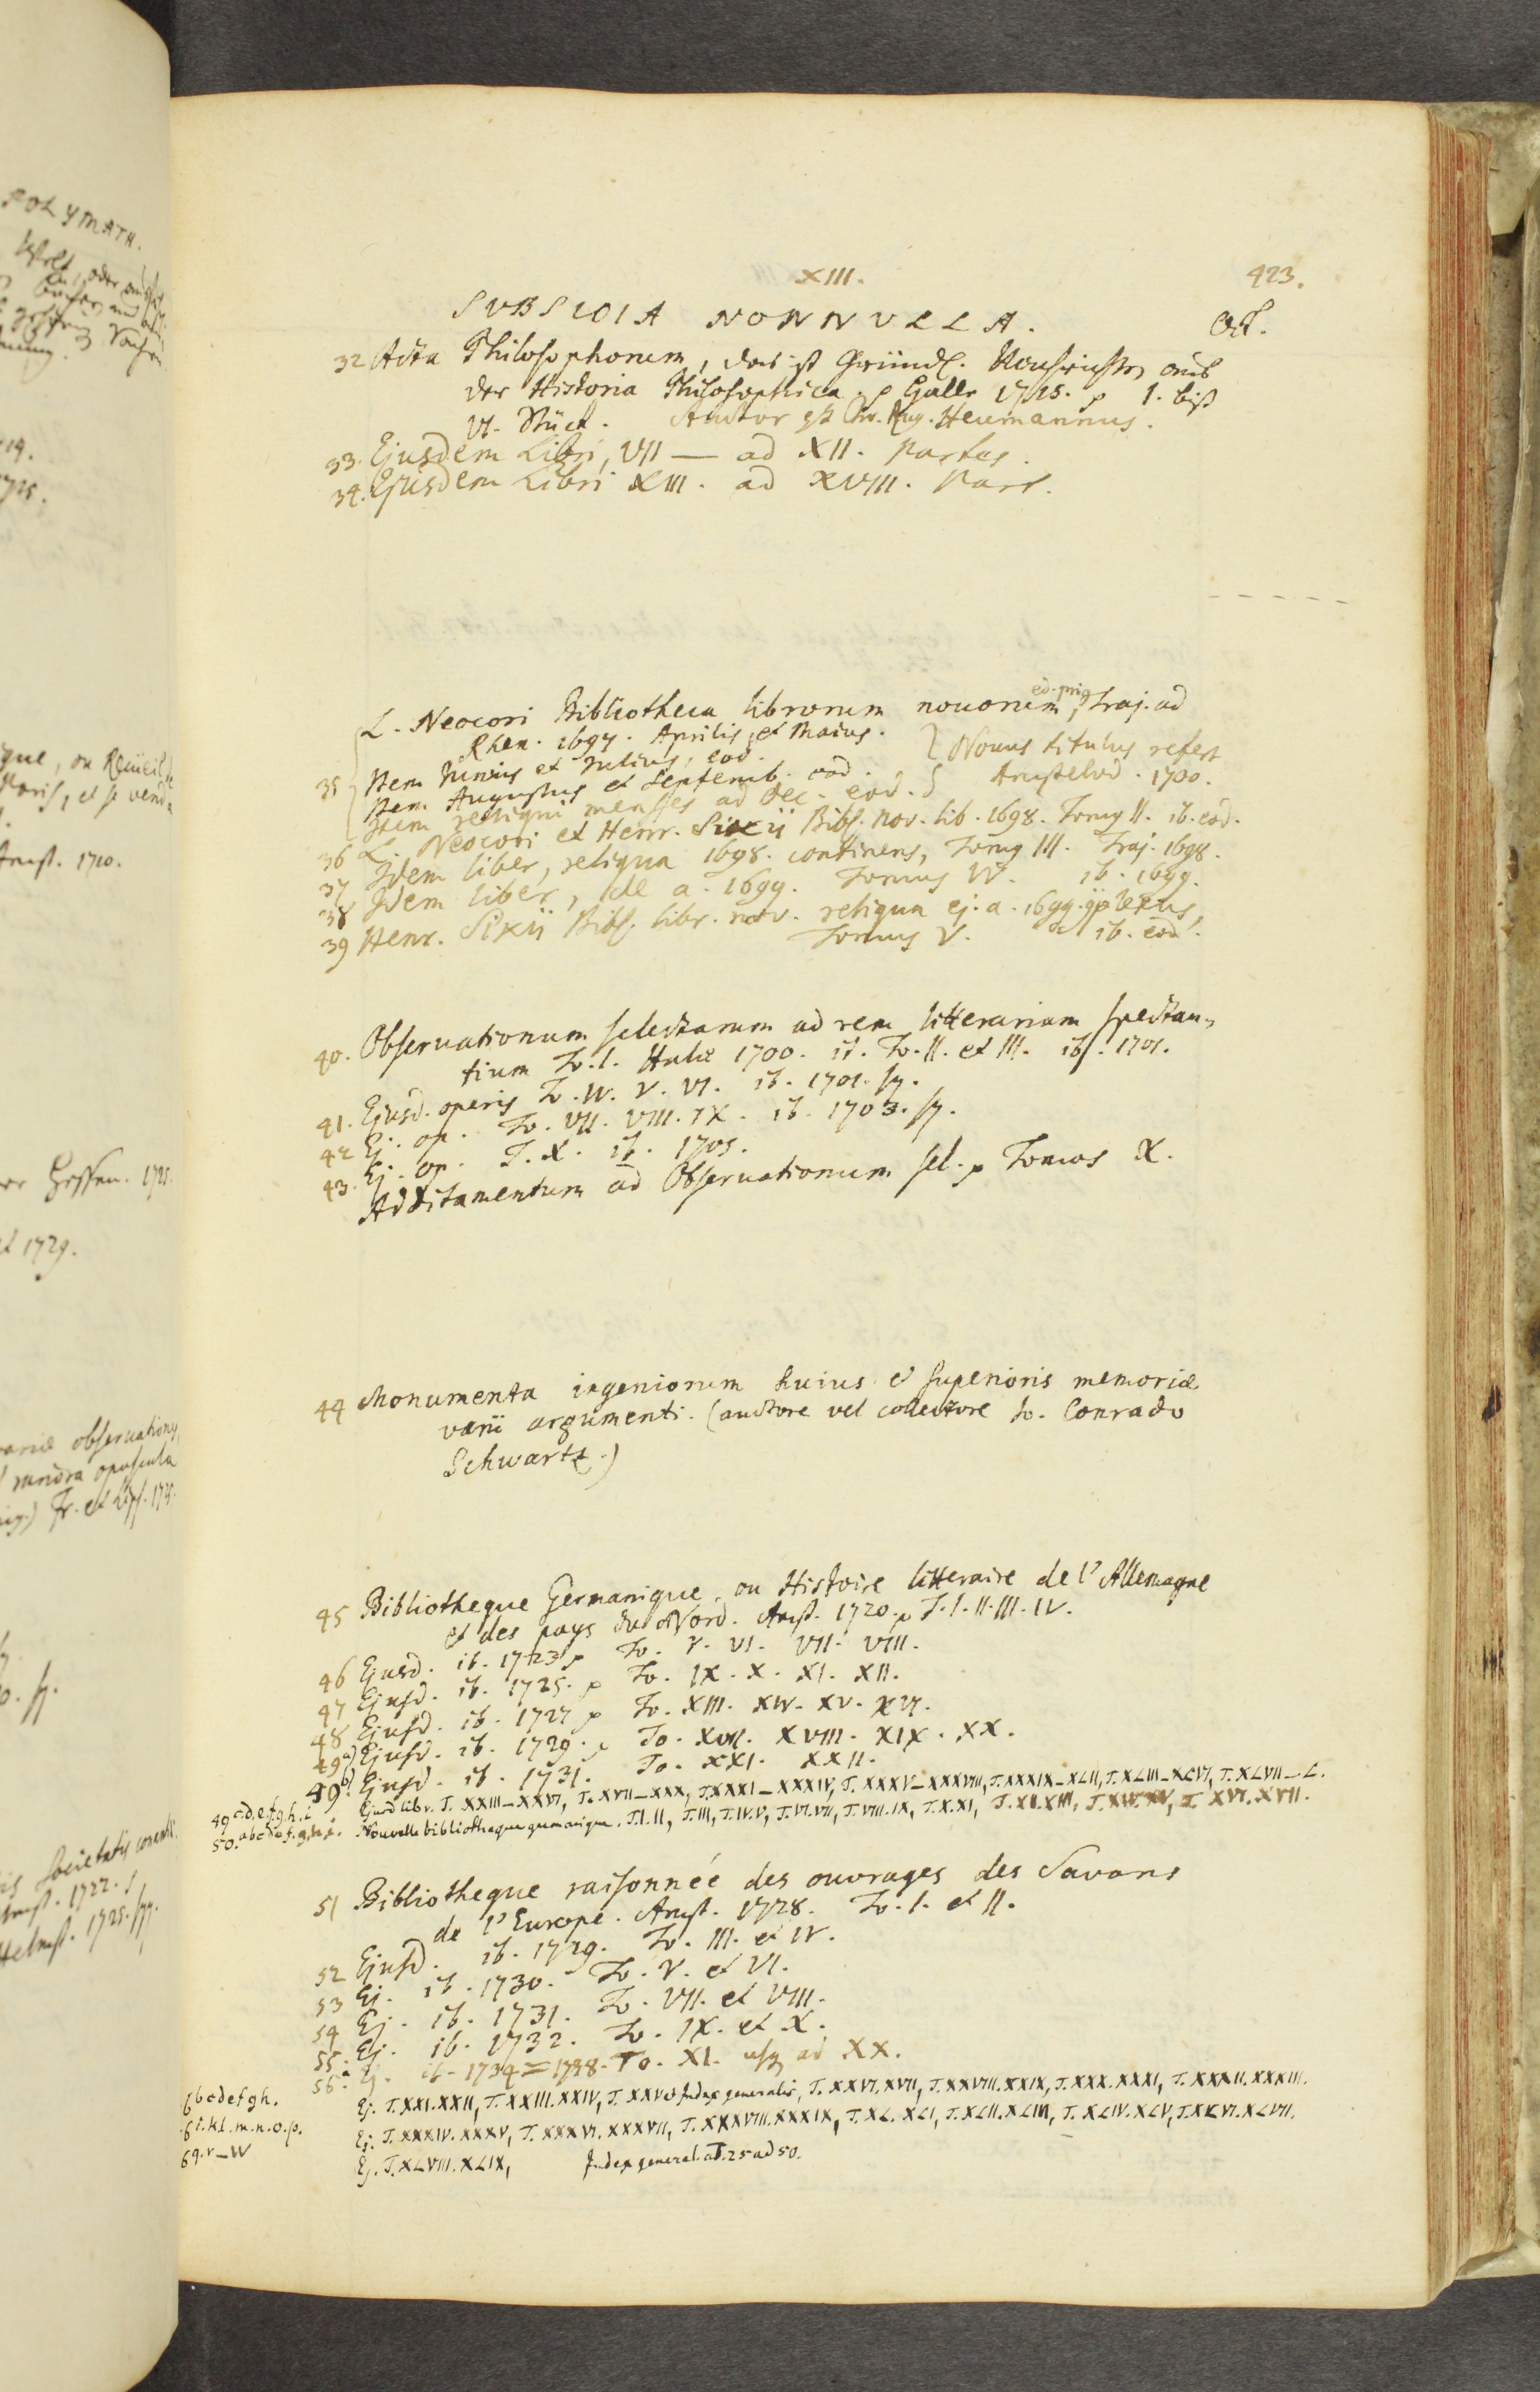 XIII.
423.
SVBSIDIA NONNVLLA.
Oct.
32 Acta Philosophorum, das ist Gründl. Nachrichten aus
der Historia Philosophica. p Halle 1715. p 1. biß
VI. Stück. Autor est Chr. Aug. Heumannus.
33. Ejusdem Libri, VII — ad XII. Partes.
34. Ejusdem Libri XIII. ad XVIII. Part.
L. Neocori Bibliotheca librorum novorum, ed. prior Traj. ad
Rhen. 1697. Aprilis, et Maius.
35 Item Iunius et Iulius, eod.
Item Augustus et Septemb. eod.
Item reliqui menses ad Dec. eod.
Novus titulus refert
Amstelod. 1700.
36 L. Neocori et Henr. Sixii Bibl. nov. lib. 1698. Tomus II. ib. eod.
37 Idem liber, reliqua 1698. continens, Tomus III. Traj. 1698.
38 Idem liber, de a. 1699. Tomus IV. ib. 1699.
39 Henr. Sixii Bibl. libr. nov. reliqua ej. a. 1699.
Tomus V. ib. eod.
40. Observationum selectarum ad rem litterariam spectan-
tium To. I. Halæ 1700. it. To. II. et III. ib. 1701.
41. Ejusd. operis To. IV. V. VI. ib. 1701. sq.
42 Ej. op. To. VII. VIII. IX. ib. 1703. sq.
43. Ej. op. T. X. ib. 1705.
Additamentum ad Observationum sel. p Tomos X.
44 Monumenta ingeniorum huius et superioris memoriæ
varii argumenti. (auctore vel collectore Io. Conrado
Schwartz.)
45 Bibliotheque Germanique, ou Histoire litteraire de l'Allemagne
et des pays du Nord. Amst. 1720. p T. I. II. III. IV.
46 Ejusd. ib. 1723 p To. V. VI. VII. VIII.
47 Ejusd. ib. 1725. p To. IX. X. XI. XII.
48 Ejusd. ib. 1727 p To. XIII. XIV. XV. XVI.
49 a) Ejusd. ib. 1729. p To. XVII. XVIII. XIX. XX.
49 b) Ejusd. ib. 1731. To. XXI. XXII.
49 c.d.e.f.g.h.i. Ejusd libr. T. XXIII_XXVI, T. XVII_XXX, T. XXXI_XXXIV, T. XXXV_XXXVIII, T. XXXIX_XLII, T. XLIII_XLVI, T. XLVII_L.
50. a b c d e f. g. h. i. Nouvelle bibliotheque germanique. T. I. II, T. III, T. IV. V, T. VI. VII, T. VIII. IX, T. X. XI, T. XII. XIII, T. XIV. XV, T. XVI. XVII.
51 Bibliotheque raisonnée des ouvrages des Savans
de l'Europe. Amst. 1728. To. I. et II.
52 Ejusd. ib. 1729. To. III. et IV.
53 Ej. ib. 1730. To. V. et VI.
54 Ej. ib. 1731. To. VII. et VIII.
55. Ej. ib. 1732. To. IX. et X.
56. a Ej. ib. 1734=1738. To. XI. usq ad XX.
56 b c d e f g h. Ej. T. XXI. XXII, T. XXIII. XXIV, T. XXV et Index generalis, T. XXVI. XVII, T. XXVIII. XXIX, T. XXX. XXXI, T. XXXII. XXXIII.
6 i. k l. m. n. o. p. Ej. T. XXXIV. XXXV, T. XXXVI. XXXVII, T. XXXVIII. XXXIX, T. XL. XLI, T. XLII. XLIII, T. XLIV. XLV, T. XLVI. XLVII.
6 q. r_w Ej. T. XLVIII. XLIX, Index general. a T. 25 ad 50.